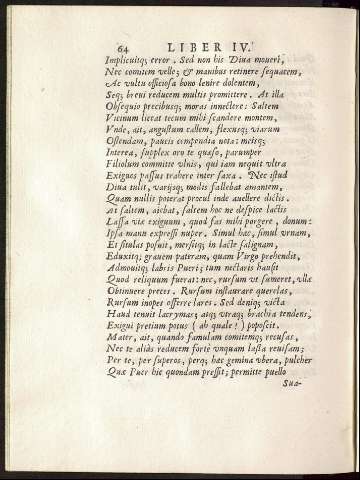 64 LIBER IV.
Implicuitq; error. Sed non his Diua moueri,
Nec comitem velle; & manibus retinere sequacem,
Ac vultu officiosa bono lenire dolentem,
Seq; breui reducem multis promittere. At illa
Obsequio precibusq; moras innectere: Saltem
Vicinum liceat tecum mihi scandere montem,
Vnde, ait, angustum callem, flexusq; viarum
Ostendam, paucis compendia nota: meisq;
Interea, supplex oro te quaso, parumper
Filiolum committe vlnis, qui iam nequit vltra
Exiguos passus trahere inter saxa. Nec istud
Diua tulit, varijsq; modis fallebat amantem,
Quam nullis poterat procul inde auellere dictis.
At saltem, aiebat, saltem hoc ne despice lactis
Lassa viæ exiguum, quod fas mihi porgere, donum:
Ipsa manu expressi nuper. Simul hæc, simul vrnam,
Et situlas posuit, mersitq; in lacte salignam,
Eduxitq; grauem pateram, quam Virgo prehendit,
Admouitq; labris Pueri; tum nectaris hausit
Quod reliquum fuerat: nec, rursum vt sumeret, vllæ
Obtinuere preces. Rursum instaurare querelas,
Rursum inopes offerre lares. Sed deniq; victa
Haud tenuit lacrymas; atq; vtraq; brachia tendens,
Exigui pretium potus (ah quale!) poposcit.
Mater, ait, quando famulam comitemq; recusas,
Nec te aliàs reducem fortè vnquam læsta reuisam;
Per te, per superos, perq; hæc gemina vbera, pulcher
Quæ Puer hic quondam pressit; permitte puello
Sua-